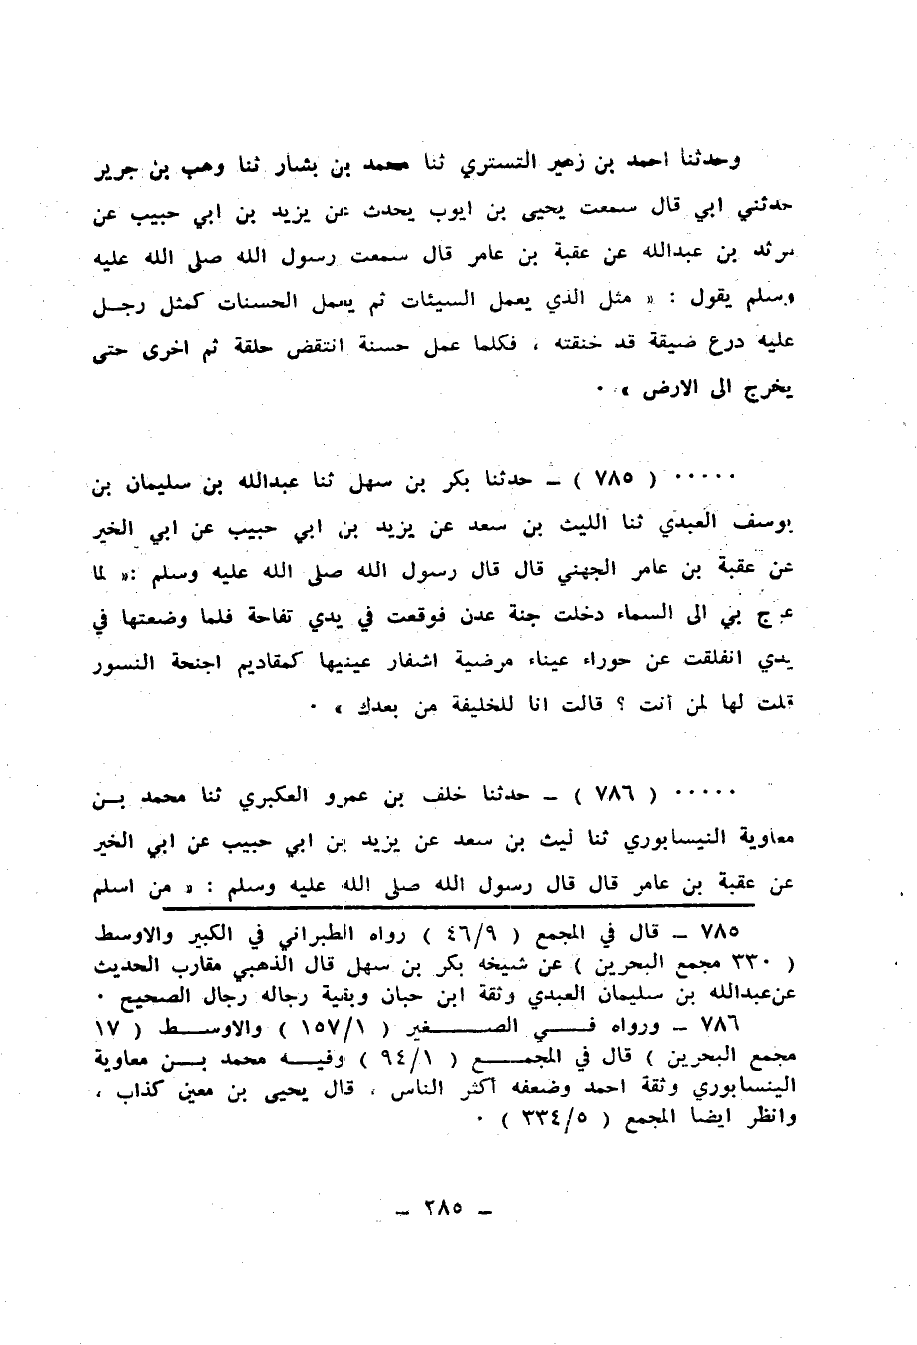 وحدثنا احمد بن زهير التستري ثنا محمد بن بشار ثنا وهب بن جرير
حدثني ابي قال سمعت يحيى بن ايوب يحدث عن يزيد بن ابي حبيب عن
مرثد بن عبدالله عن عقبة بن عامر قال سمعت رسول الله صلى الله عليه
وسلم يقول : « مثل الذي يعمل السيئات ثم يعمل الحسنات كمثل رجـل
عليه درع ضيقة قد خنقته ، فكلما عمل حسنة انتقض حلقة ثم اخرى حتى
يخرج الى الارض » ٠
٠٠٠٠٠ ( ٧٨٥ ) ـ حدثنا بكر بن سهل ثنا عبدالله بن سليمان بن
يوسف العبدي ثنا الليث بن سعد عن يزيد بن ابي حبيب عن ابي الخير
عن عقبة بن عامر الجهني قال قال رسول الله صلى الله عليه وسلم :« لما
عرج بي الى السماء دخلت جنة عدن فوقعت في يدي تفاحة فلما وضعتها في
يدي انفلقت عن حوراء عيناء مرضية اشفار عينيها كمقاديم اجنحة النسور
قلت لها لمن أنت ؟ قالت انا للخليفة من بعدك » ٠
٠٠٠٠٠ ( ٧٨٦ ) ـ حدثنا خلف بن عمرو العكبري ثنا محمد بـن
معاوية النيسابوري ثنا ليث بن سعد عن يزيد بن ابي حبيب عن ابي الخير
عن عقبة بن عامر قال قال رسول الله صلى الله عليه وسلم : « من اسلم
٧٨٥ ـ قال في المجمع ( ٤٦/٩ ) رواه الطبراني في الكبير والاوسط
( ٣٣٠ مجمع البحرين ) عن شيخه بكر بن سهل قال الذهبي مقارب الحديث
عن عبدالله بن سليمان العبدي وثقة ابن حبان وبقية رجاله رجال الصحيح ٠
٧٨٦ ـ ورواه فـــي الصـــــغير ( ١٥٧/١ ) والاوســـط ( ١٧
مجمع البحرين ) قال في المجمـــع ( ٩٤/١ ) وفيـــه محمد بـــن معاوية
الينسابوري وثقة احمد وضعفه أكثر الناس ، قال يحيى بن معين كذاب ،
وانظر ايضا المجمع ( ٣٣٤/٥ ) ٠
ـ ٢٨٥ ـ